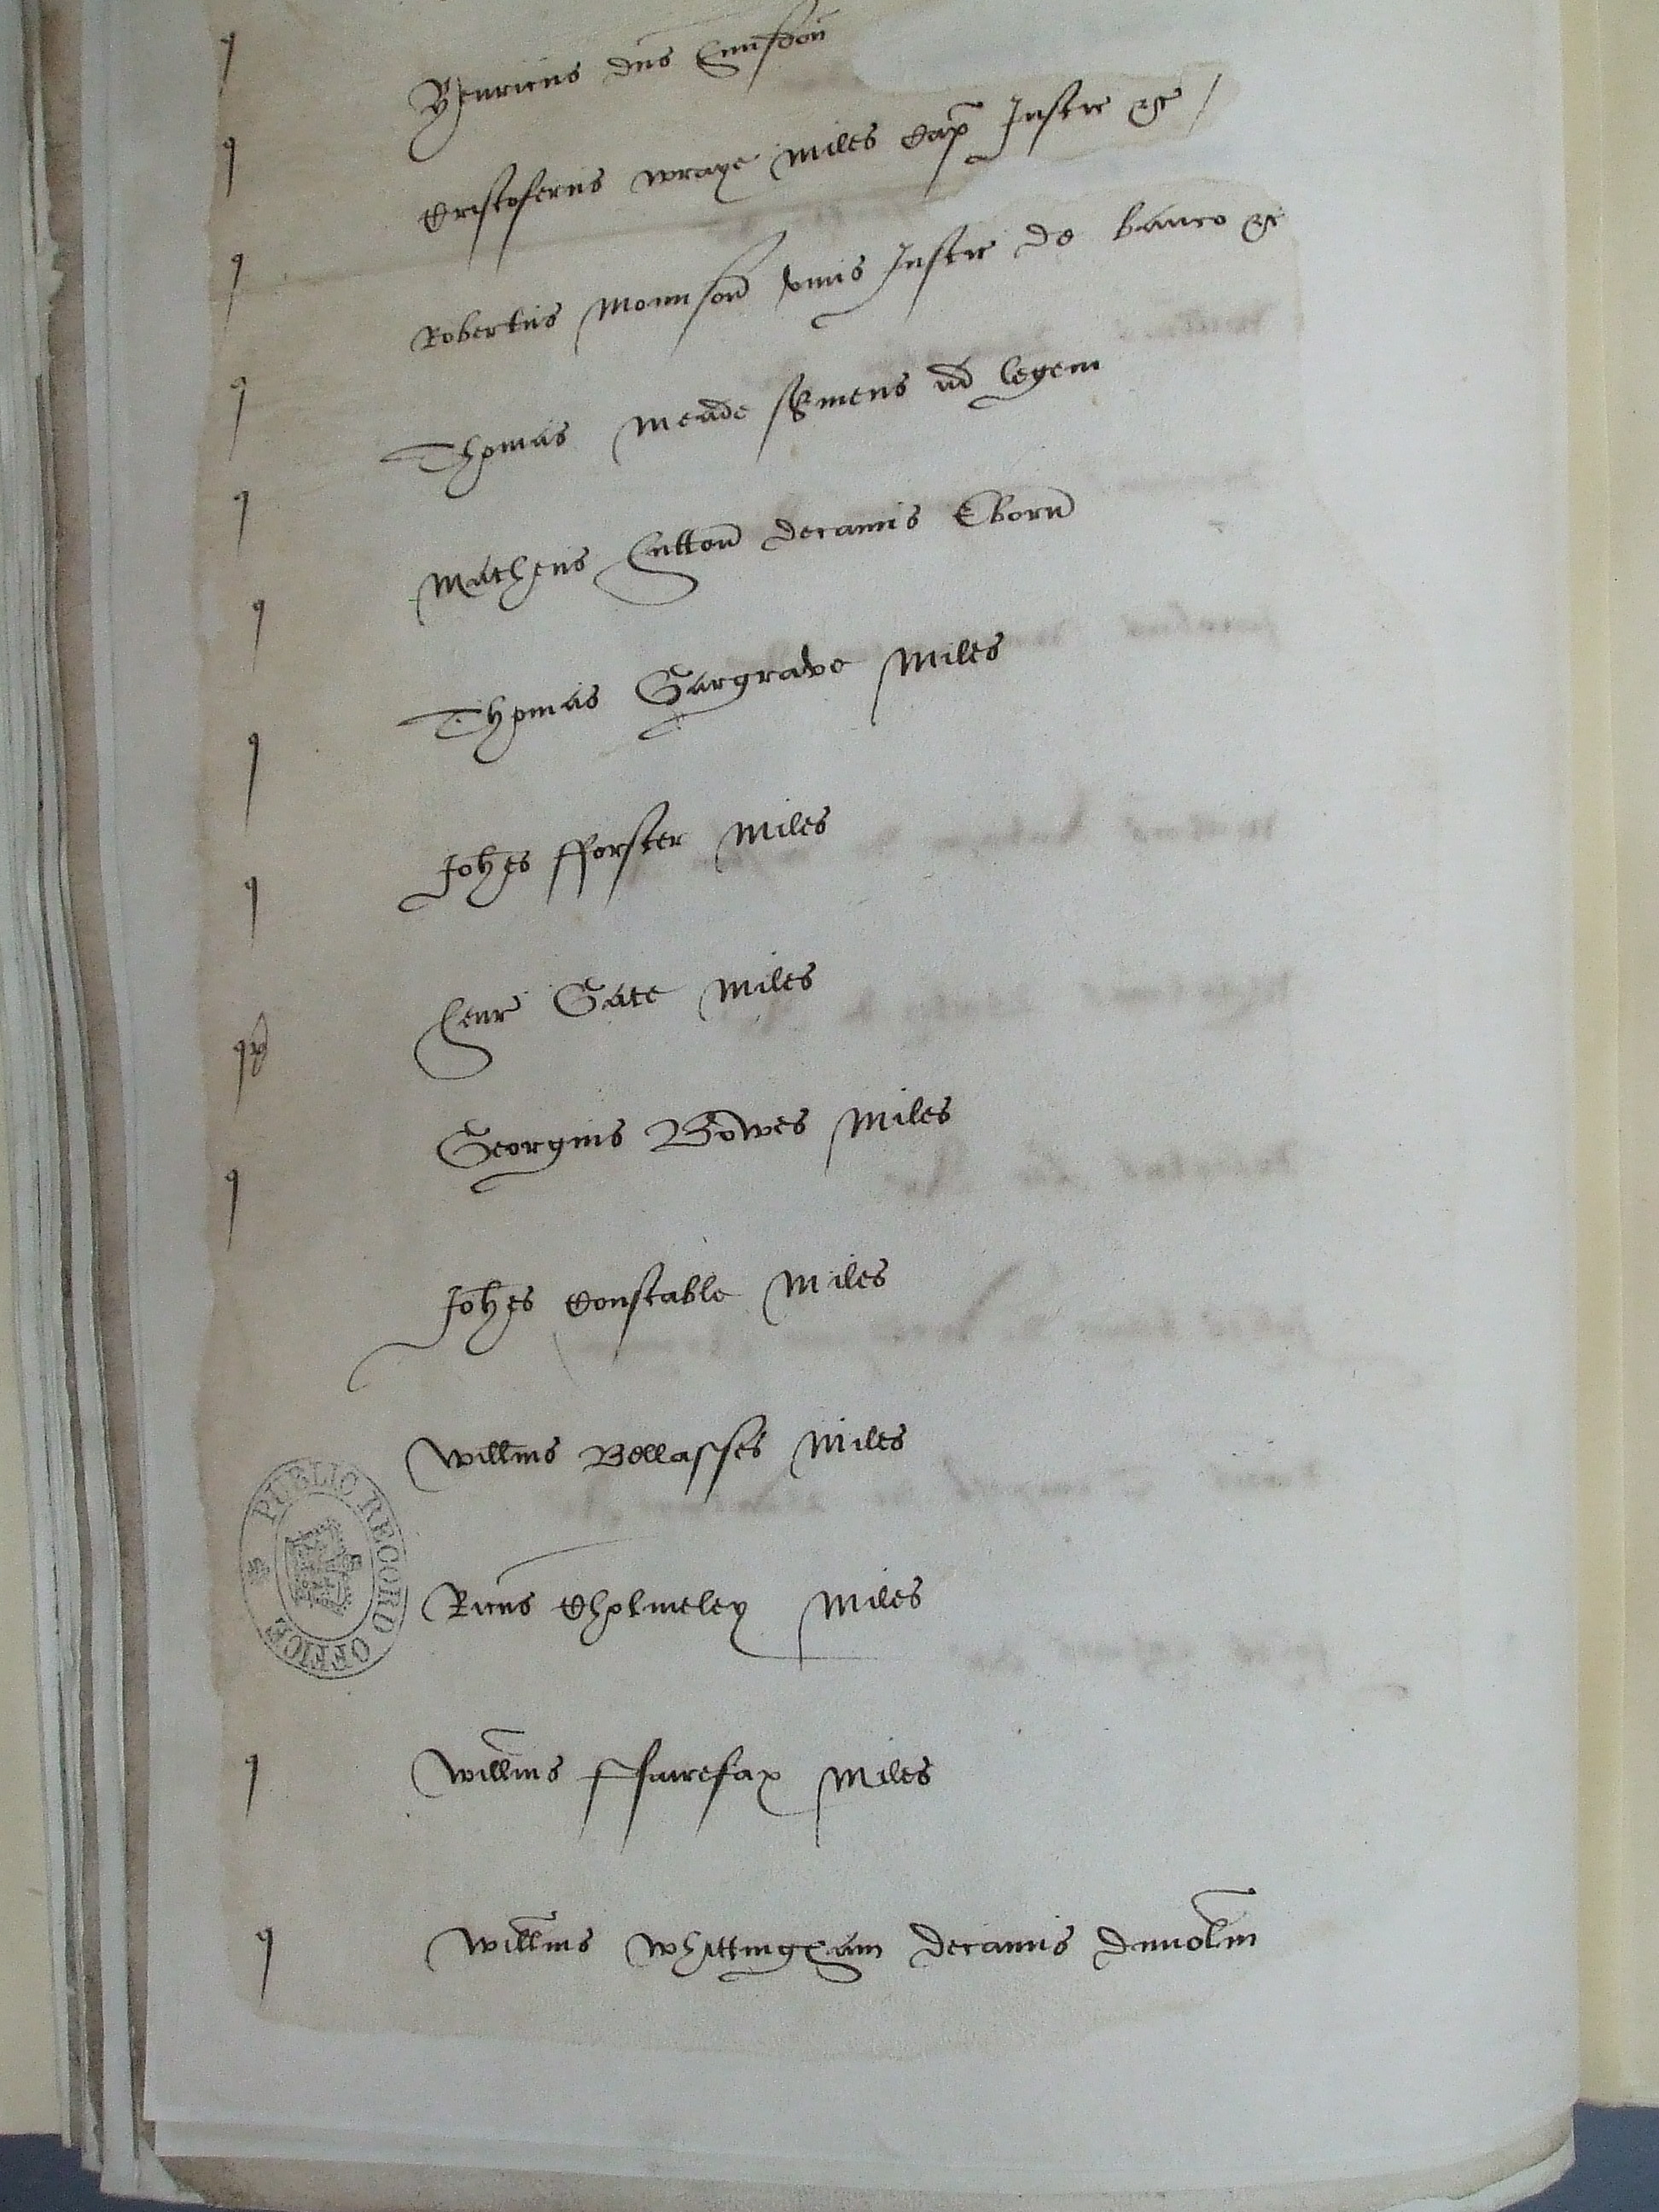 Henricus dns Hunsdon
Cristoferus Wraye Miles Cap Justic &c /
Robertus Mounson vnus Justic de banco &c
Thomas Meade s'viens ad legem
Matheus Hutton decanus Eboru
Thomas Gargrave Miles
Johes fforster Miles
Henr Gate Miles
Georgius Bowes Miles
Johes Constable Miles
Willms Bellasses Miles
PUBLIC RECORD OFFICE
Ricus Cholmeley Miles
Willms ffairefax Miles
Willms Whittingham decanus Dunolm